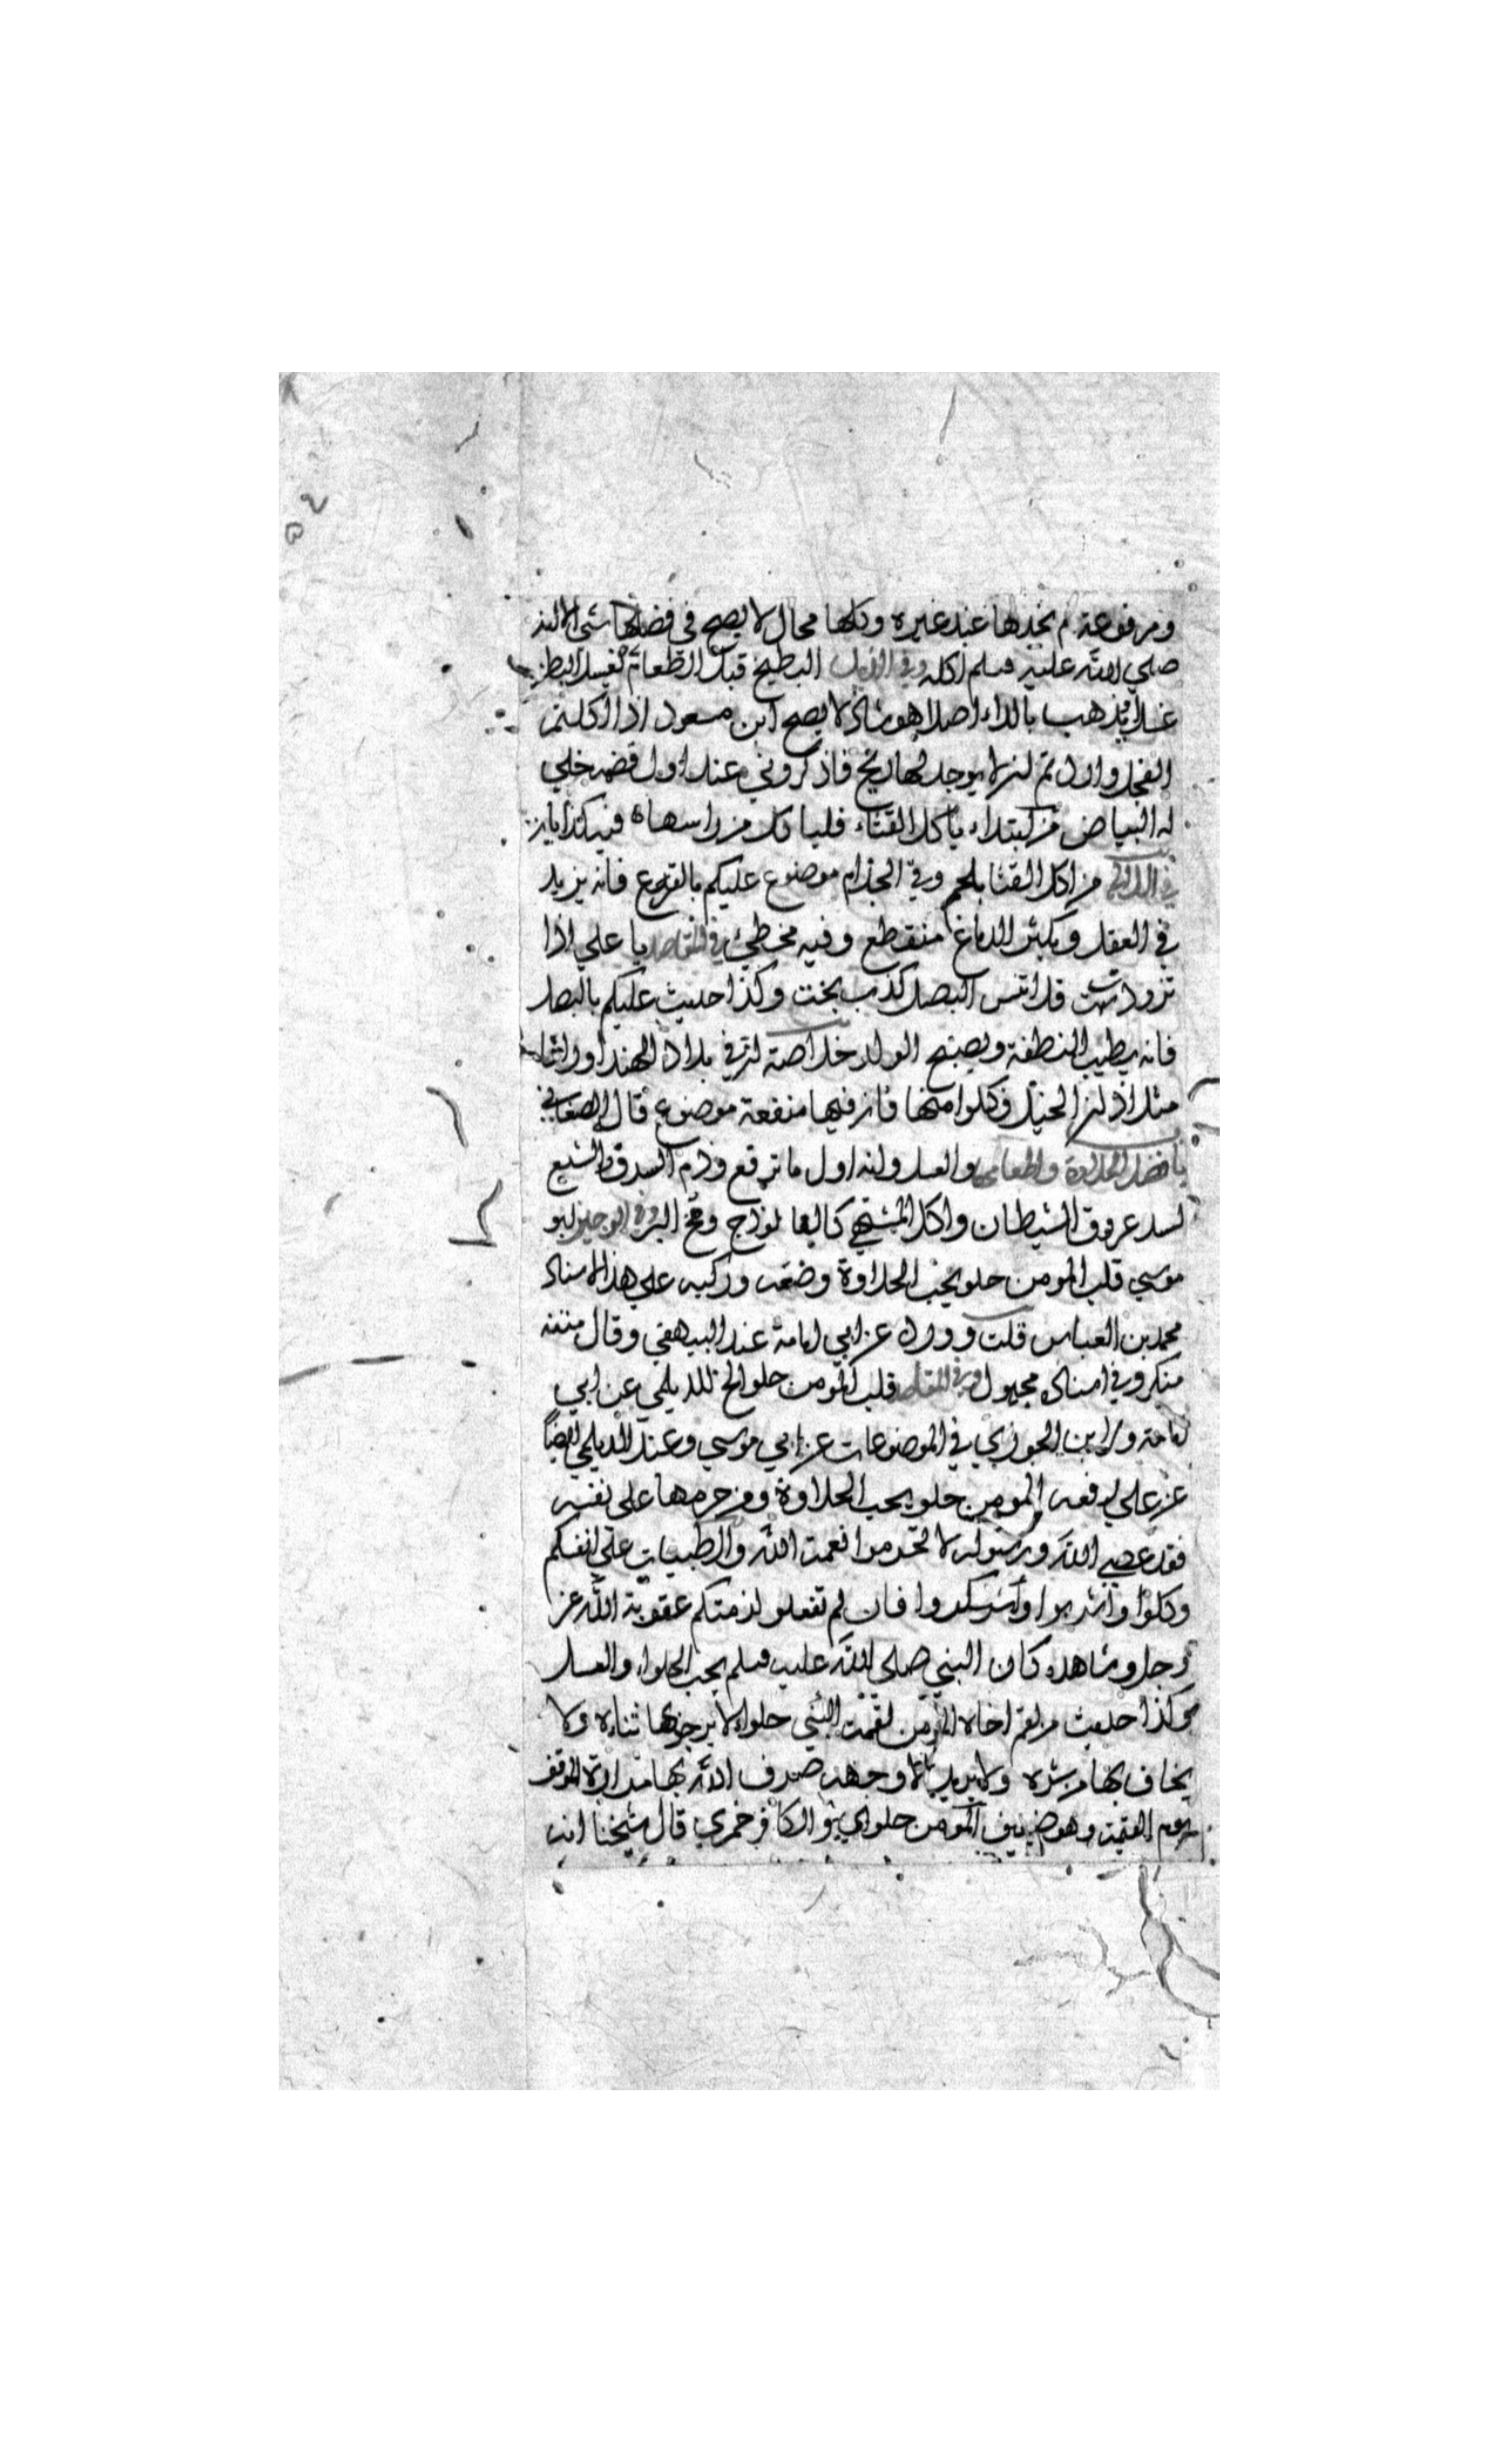 ومرفوعة لم نجدها عند غيره وكلها محال لا يصح في فضلها شي الا انه
صلي الله عليه وسلم اكله وفي الذيل البطيخ قبل الطعام يغسل البطن
غسلا ويذهب بالداء اصلا هو شاذ لا يصح ابن مسعود اذا اكلتم
الفجل واردتم ان لا يوجد لها ريح فاذكروني عند اول قضمه خلي
له البياض من ابتداء ياكل القثاء فلياكل من راسها فيه كذابان
في اللآلي من اكل القثا بلحم وقي الجذام موضوع عليكم بالقرع فانه يزيد
في العقل ويكبر الدماغ منقطع وفيه مخطئ في المقاصد يا علي اذا
تزودت فلا تنس البصل كذب بحت وكذا حديث عليكم بالبصل
فانه يطيب النطفة ويصبح الولد خلاصة ان في بلاد الهند اوراقا
مثل اذان الخيل فكلوا منها فان فيها منفعة موضوع قال الصغاني
باب فضل الحلاوة واطعامها والعسل وانه اول ما ترفع وذم السرف والشبع
لسد عروق الشيطان واكل المشتهي كالفالوذج ومخ البر وفي الوجيز ابو
موسي قلب المومن حلو يحب الحلاوة وضعه وركبه علي هذا الاسناد
محمد بن العباس قلت وورد عن ابي امامة عند البيهقي وقال متنه
منكر وفي اسناده مجهول وفي المقاصد قلب المومن حلو الخ للديلمي عن ابي
امامة ولابن الجوزي في الموضوعات عن ابي موسي وعند الديلمي ايضاً
عن علي رفعه المومن حلو يحب الحلاوة ومن حرمها على نفسه
فقد عصي الله ورسوله لا تحرموا نعمت الله والطيبات علي انفسكم
وكلوا واشربوا واشكروا فان لم تفعلو لزمتكم عقوبة الله عز
وجل وشاهده كان النبي صلى الله عليه وسلم يحب الحلواء والعسل
وكذا حديث من لقم اخاه المومن لقمة حلواء لا يرجو بها ثناءه ولا
يخاف بها من شره ولا يريد الا وجهه صرف الله بها مرارة الموقف
يوم القيمة وهو ضعيف المومن حلوي والكافر خمري قال شيخنا انه